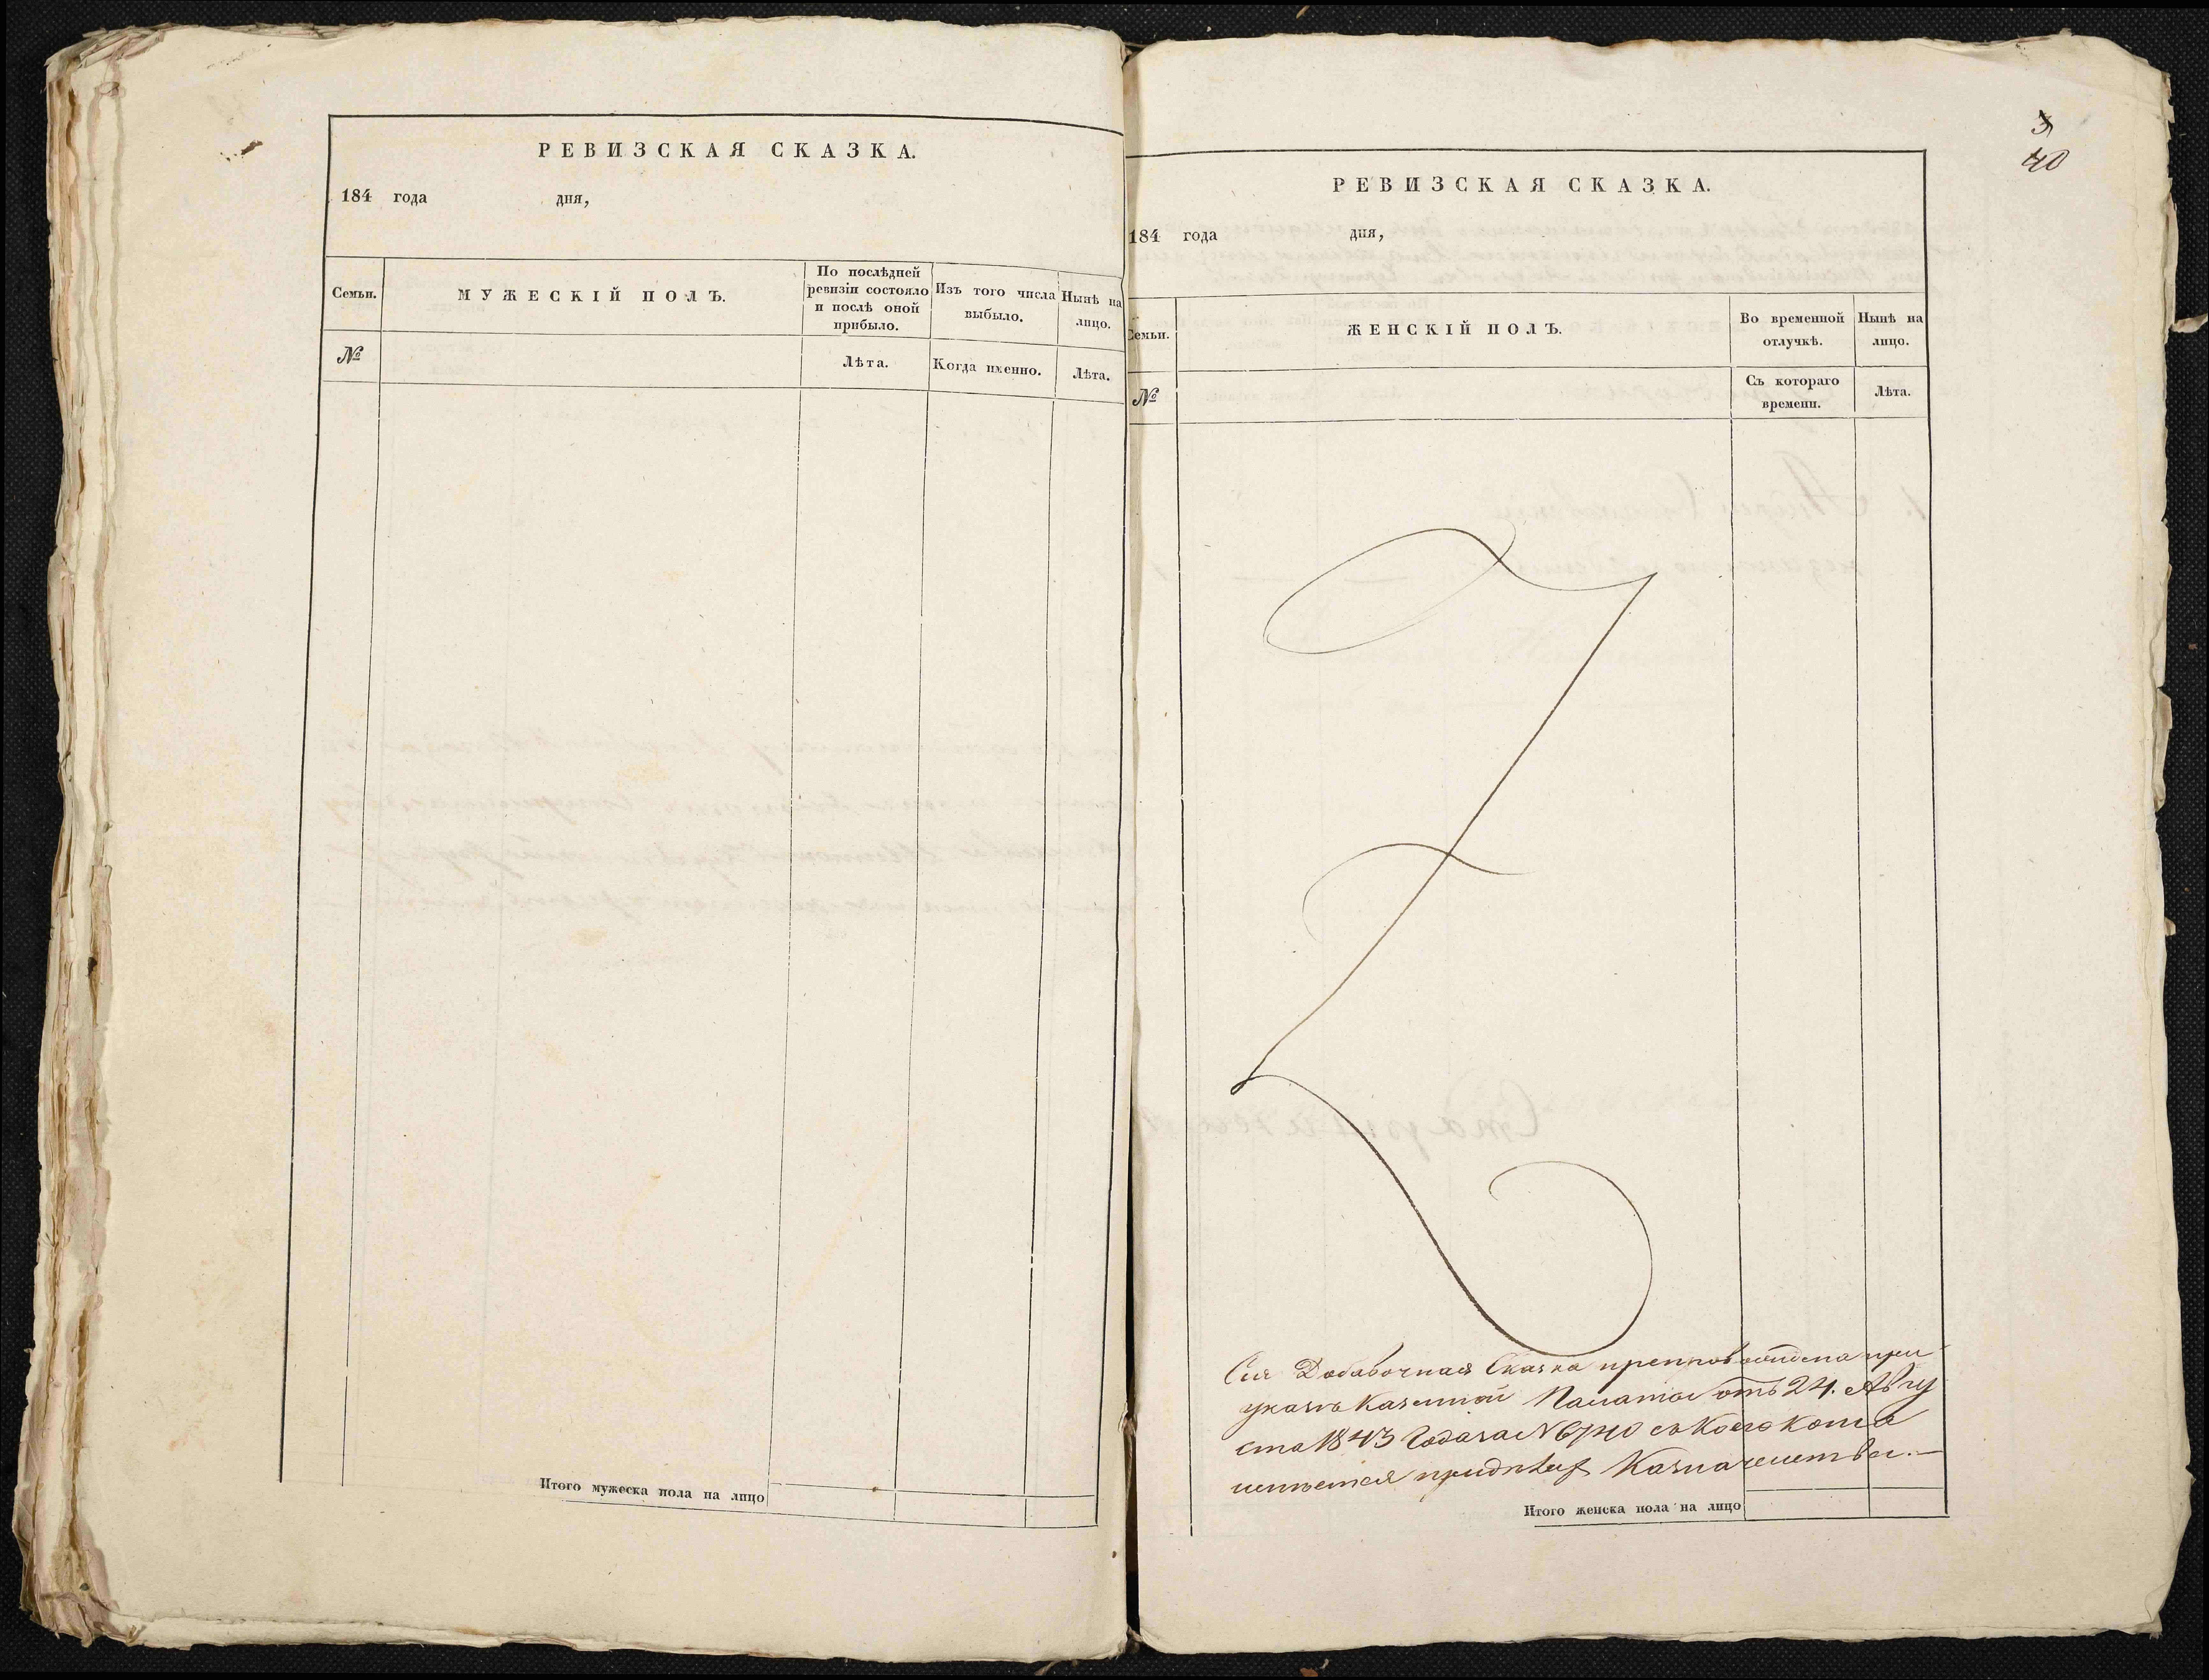 РЕВИЗСКАЯ СКАЗКА.
184 года дня,
Семьи.
МУЖЕСКІЙ ПОЛЪ.
По послѣдней
ревизіи состояло
и послѣ оной
прибыло.
Изъ того числа
выбыло.
Нынѣ на
лицо.
№
Лѣта.
Когда именно.
Лѣта.
Итого мужеска пола на лицо
3
40
РЕВИЗСКАЯ СКАЗКА.
184 года дня,
Семьи.
ЖЕНСКІЙ ПОЛЪ.
Во временной
отлучкѣ.
Нынѣ на
лицо.
№
Съ котораго
времени.
Лѣта.
Сия Добавочная Сказка препровождена при
указѣ Казенной Палаты отъ 24. Авгу
ста 1843 Года за №6740 съ коего копія
имѣется Казначейства.—
Итого женска пола на лицо